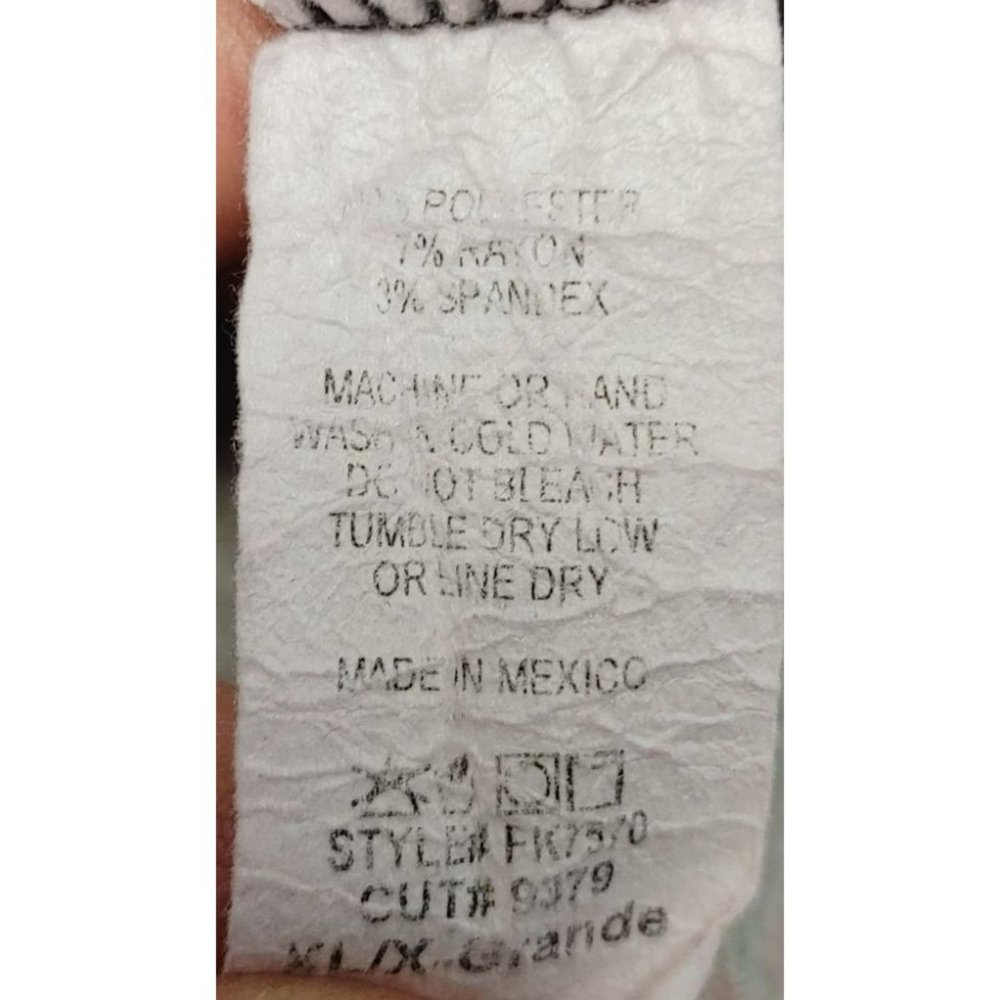 POLYESTER
7% RAYON
3% SPANDEX
MACHINE OR HAND
WASH IN COLD WATER
DO NOT BLEACH
TUMBLE DRY LOW
OR LINE DRY
MADE IN MEXICO
STYLE# FK7570
CUT# 9379
XL/X-Grande